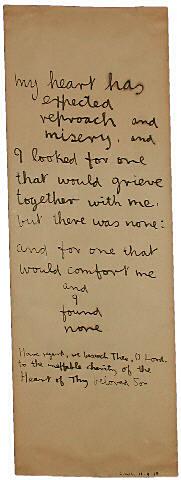 my heart has
expected
reproach and
misery, and
I looked for one
that would grieve
together with me,
but there was none:
and for one that
would comfort me
and
I
found
none
Have regard, we beseech Thee, O Lord,
to the ineffable charity of the
Heart of Thy beloved Son